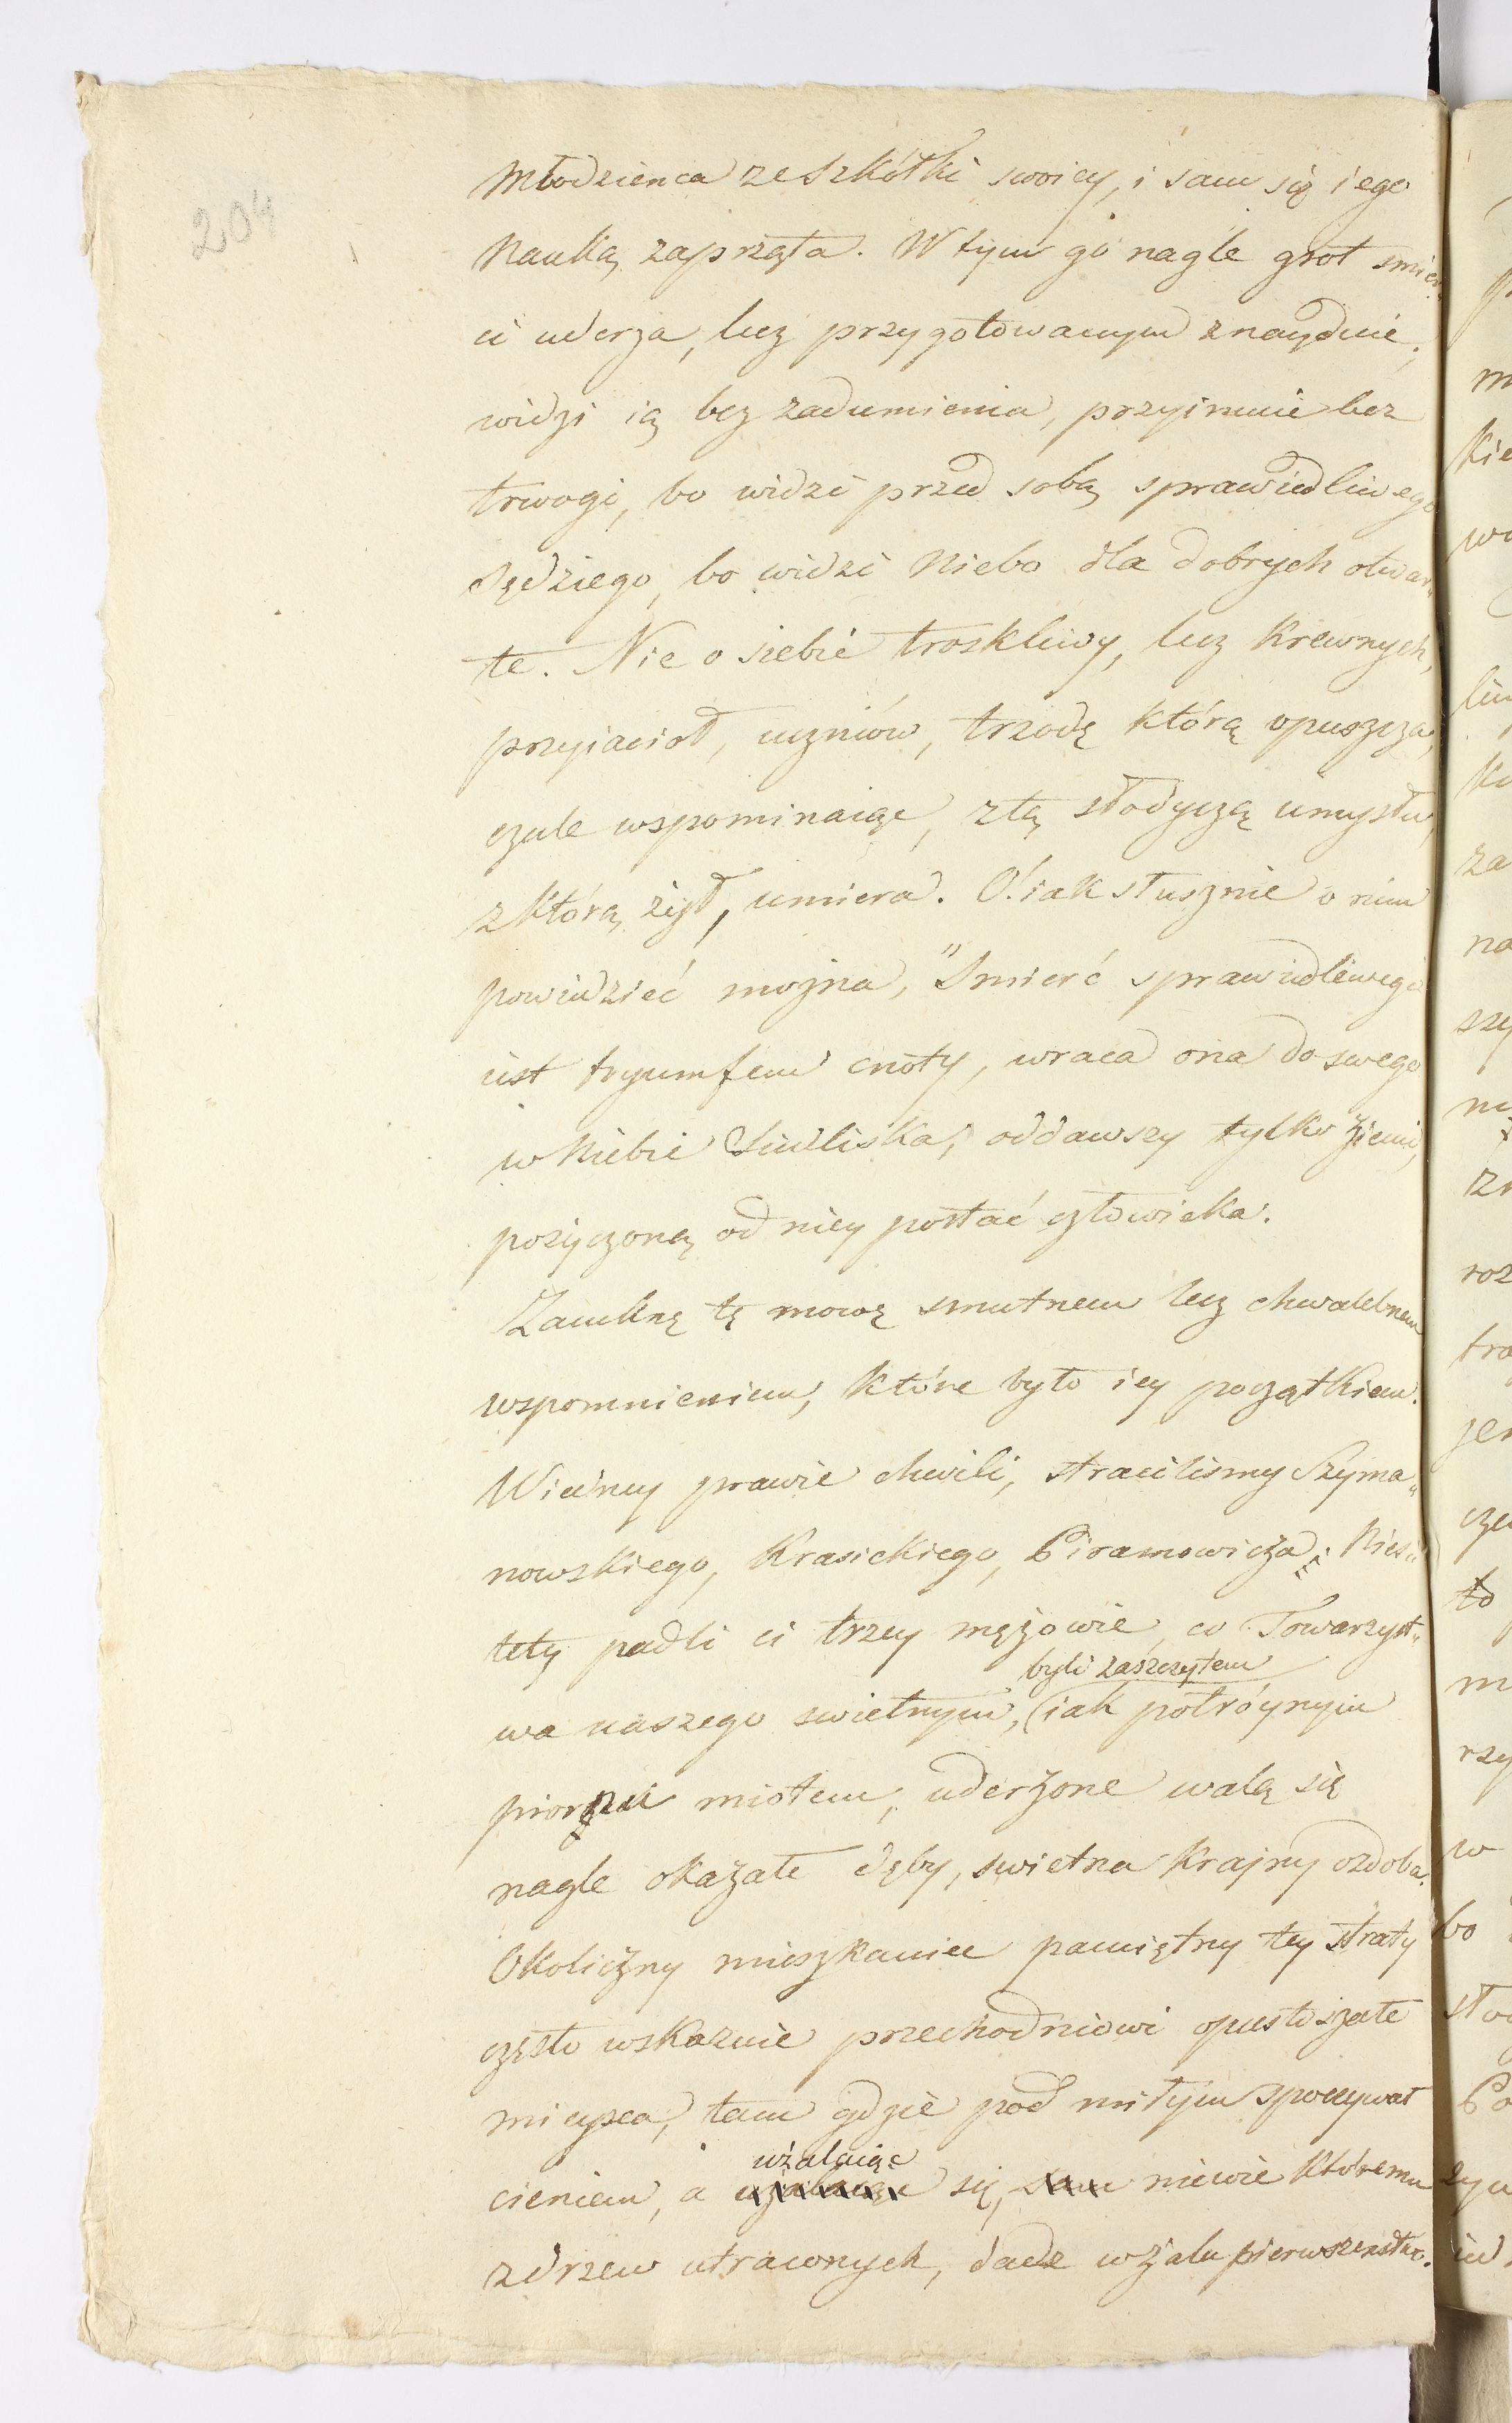 204
Młodzienca ze Szkółki swoiey, i sam się iego
Nauką zaprząta. W tym go nagle grot smier„
ci uderza, lecz przygotowanym znayduie;
widzi ią bez zadumienia, przyimuie bez
trwogi, bo widzi przed sobą sprawiedliwego
Sędziego, bo widzi Niebo dla dobrych otwar„
te. Nie o siebie troskliwy, lecz Krewnych,
przyiaciół, uczniów, trzodę którą opuszcza,
czule wspominaiąc, z tą słodyczą umysłu,
z którą żył, umiera. O! iak słusznie o nim
powiedzieć można, "Smierć sprawiedliwego
iest tryumfem cnoty, wraca ona do swego
w Niebie Siedliska, oddawszy tylko Ziemi,
pożyczoną od niey postać człowieka.
Zamknę tę mowę smutnem lecz chwalebnem
wspomnieniem, które było iey początkiem.
W iedney prawie chwili, straciliśmy Szyma„
nowskiego, Krasickiego, Piramowicza; Nies„
tety padli ci trzey mężowie, co Towarzyst„
byli zaszczytem
wa naszego swietnym, (iak potróynym
piorunu miotem, uderzone walą się
nagle okazałe dęby, swietna Krajny ozdoba.
Okoliczny mieszkaniec pamiętny tey straty
często wskazuie przechodniowi opustoszałe
mieysca, tam gdzie pod miłym spoczywał
użalaiąc
cieniem, a użalaiąc się, sam niewie któremu
z drzew utraconych, dadz w żalu pierwszeństwo.